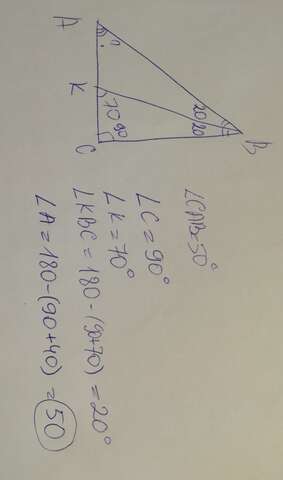 A
?
K
70
90
C
20
20
B
LCAB=50°
LC = 90°
LK = 70°
LKBC = 180 - (90+70) = 20°
LA = 180 - (90+40) = 50